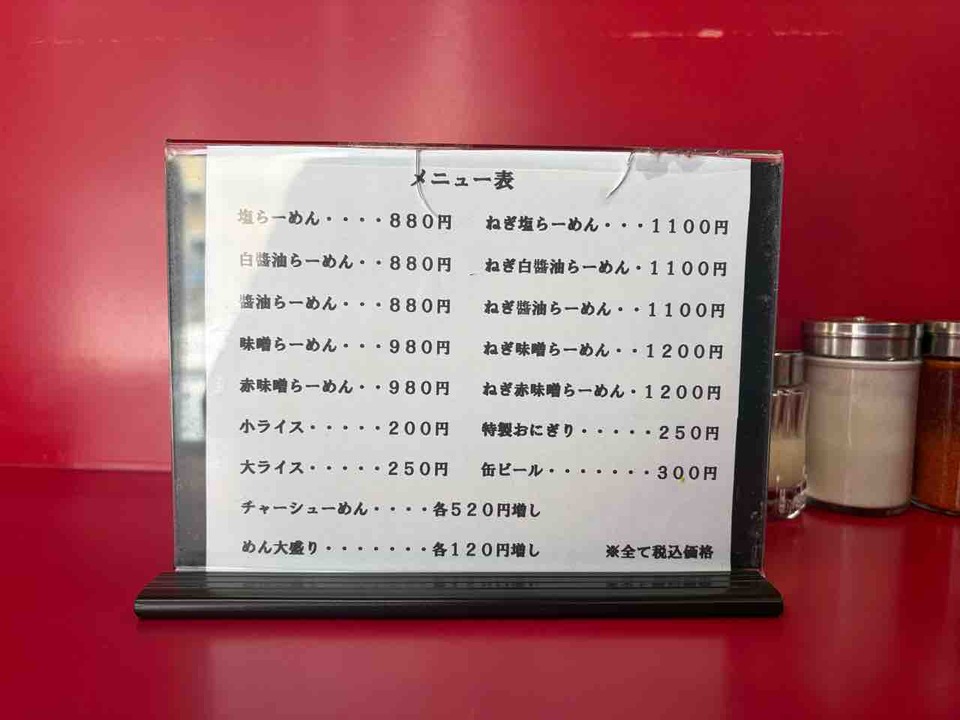 メニュー表
塩らーめん・・・・880円 ねぎ塩らーめん・・・1100円
白醬油らーめん・・880円 ねぎ白醬油らーめん・1100円
醬油らーめん・・・880円 ねぎ醬油らーめん・・1100円
味噌らーめん・・・980円 ねぎ味噌らーめん・・1200円
赤味噌らーめん・・980円 ねぎ赤味噌らーめん・1200円
小ライス・・・・・200円 特製おにぎり・・・・・250円
大ライス・・・・・250円 缶ビール・・・・・・・300円
チャーシューめん・・・・各520円増し
めん大盛り・・・・・・・各120円増し ※全て税込価格